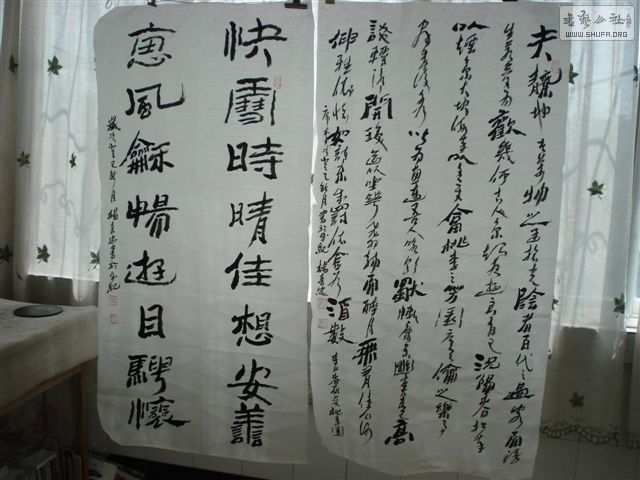 书艺公社
WWW.SHUFA.ORG
夫天地者萬物之逆旅光陰者百代之過客而浮
生若夢為歡幾何古人秉燭夜遊良有以也況陽春召我
以煙景大塊假我以文章會桃李之芳園序天倫之樂事
群季俊秀以為惠連吾人詠歌獨慚康樂幽賞未已高
談轉清開瓊筵以坐花飛羽觴而醉月無有佳作何
伸雅懷如詩不成罰依金谷酒數
快雪時晴佳想安善
惠風龢暢遊目騁懷